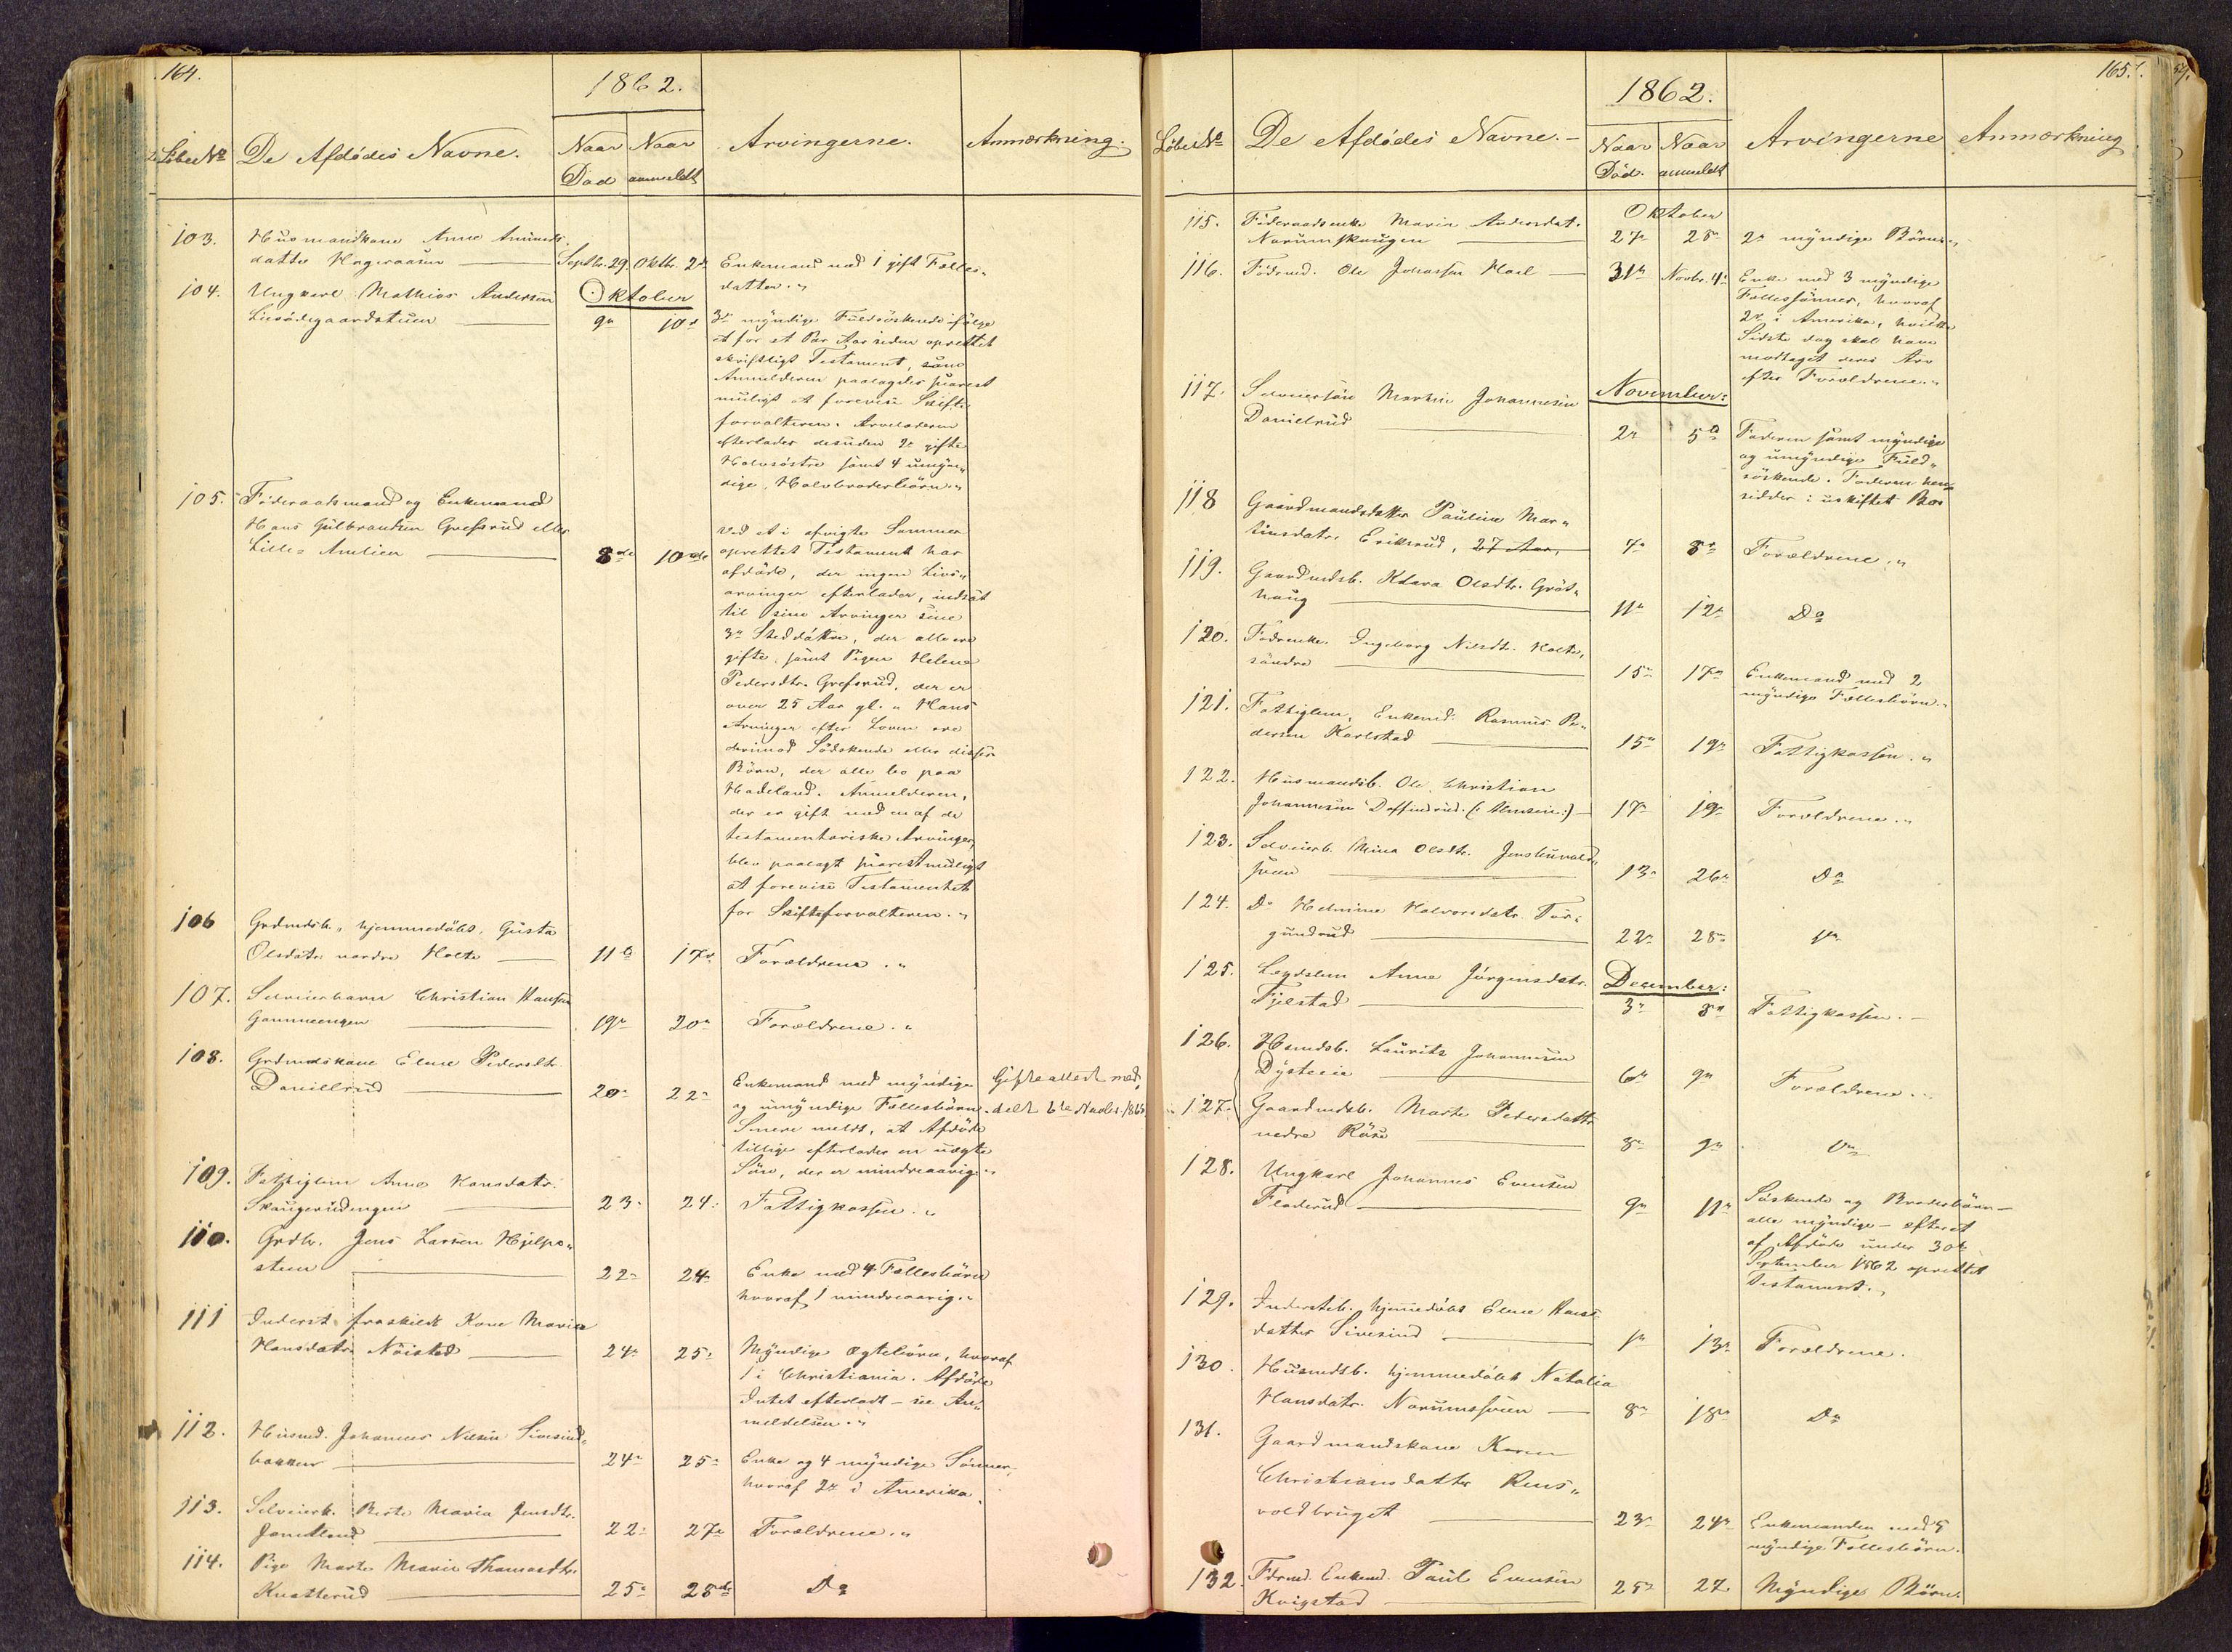 164.
1862.
Löbe No De Afdödes Navne. Naar Död Naar anmeldt Arvingerne. Anmærkning.
103. Husmandkone Anne Amunds-
datter Hageraasen Septbr. 29. Oktbr. 2de Enkemand med 1 gift Fælles-
datter.
104. Ungkarl Mathias Andersen Oktober
9de 10de 3de myndige Fuldsöskende ifölge
et for et Par Aar siden oprettet
skriftligt Testament, som
Anmelderen paalagdes snarest
muligt at forevise Skifte-
forvalteren. Arveladeren
efterlader desuden 2de gifte
Halvsöstre samt 4 umyn-
dige Halvbroderbörn.
105. Föderaadsmand og Enkemand
Hans Gulbrandsen Grefsrud eller
Lille Amlien 8de 10de
ved et i afvigte Sommer
oprettet Testament har
afdöde, der ingen Livs-
arvinger efterlader, indsat
til sine Arvinger sine
3de Steddöttre, der alle ere
gifte, samt Pigen Helene
Pedersdtr. Grefsrud, der er
over 25 Aar gl. Hans
Arvinger efter Loven ere
derimod Södskende eller disses
Börn, der alle bo paa
Hadeland. Anmelderen,
der er gift med en af de
testamentariske Arvinger,
blev paalagt snarest muligt
at forevise Testamentet
for Skifteforvalteren.
106 Grdmdsb. hjemmedöbt, Gusta
Olsdatr. nordre Holte 11te 17de Forældrene.
107. Selveierbarn Christian Hansen
Gammeengen 19de 20de Forældrene.
108. Grdmdskone Elene Pedersdtr.
Danielrud 20de 22de Enkemand med myndige Gifteattest med-
og umyndige Fællesbörn. delt 6te Novbr. 186
Senere meldt, at Afdöde
tillige efterlader en uægte
Sön, der er mindreaarig.
109. Fattiglem Anne Hansdatr.
Skaugerudengen 23 24 Fattigkassen.
110. Grdbr. Jens Larsen Hjelpe-
steen 22 24 Enke med 4 Fællesbörn
hvoraf 1 mindreaarig.
111 Inderst fraskilt Kone Maria
Hansdatr. Nöisted 24 25 Myndige Ægtebörn, hvoraf
1 i Christiania. Afdöde
Intet efterladt – se An-
meldelsen.
112. Husmd. Johannes Nilsen Sivesind-
bakken 24 25 Enke og 4 myndige Sönner,
hvoraf 2de i Amerika.
113. Selveierb. Berte Maria Jensdtr.
22 27 Forældrene.
114. Pige Marte Marie Thomasdtr.
Knatterud 25 28de Do
165.
1862.
Löbe No De Afdödes Navne. Naar Död. Naar anmeldt Arvingerne Anmærkning
115. Föderaadsenke Maria Andersdat. Oktober
Narumskaugen 27 28 2de myndige Börn.
116. Födrmd. Ole Johansen Hoel 31te Novbr. 4de Enke med 3 myndige
Fællessönner, hvoraf
2de i Amerika, hvilke
Sidste dog skal have
modtaget deres Arv
efter Forældrene.
117. Selveiersön Martin Johannesen November:
Danielrud 2de 5te Faderen samt myndige
og umyndige Fuld-
söskende. Faderen hen-
sidder i uskiftet Bo
118 Gaardmandsdatter Pauline Mar-
tinsdatr. Eriksrud, 27 Aar, 7de 8de Forældrene.
119. Gaardmdsb. Klara Olsdtr. Gröt-
haug 11te 12te Do
120. Födrenke Ingeborg Nilsdtr. Holte,
söndre 15de 17de Enkemand med 2
myndige Fællesbörn.
121. Fattiglem, Enkemd. Rasmus Pe-
dersen Karlstad 15de 19de Fattigkassen.
122. Husmandsb. Ole Christian
Johannesen Daffindrud. 17de 19de Forældrene.
123. Selveierb. Mina Olsdtr. Jenshuvold-
sveen 13de 26de Do
124. Do Helmine Halvorsdatr. Tor-
gundrud 22de 28de Do
125. Legdslem Anne Jörgensdatr. December:
Fjelstad 3de 8de Fattigkassen.
126. Hsmdsb. Laurits Johannesen
Dysteeie 6te 9de Forældrene.
127. Gaardmdsb. Marte Pedersdatter
nedre Röise 8de 9de Do
128. Ungkarl Johannes Evensen
Fladerud 9de 11te Söskende og Broderbörn –
alle myndige – efter et
af Afdöde under 30te
September 1862 oprettet
Testament.
129. Inderstb. hjemmedöbt Elene Hans-
datter Sivesind 1te 13de Forældrene.
130. Husmdsb. hjemmedöbt Natalia
Hansdatr. Narumssveen 8de 18de Do
131. Gaardmandskone Karen
Christiansdatter Rens-
voldbruget 23de 24de Enkemanden med 5
myndige Fællesbörn.
132. Fdrmd. Enkemd. Paul Evensen
Kvigstad 25de 27 Myndige Börn.